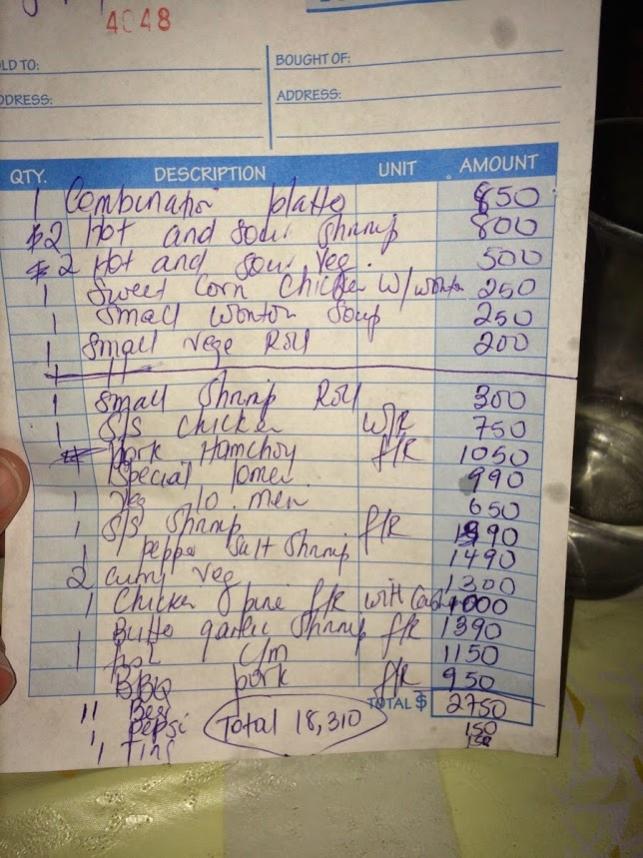 4048
LD TO:
BOUGHT OF:
DDRESS:
ADDRESS:
QTY. DESCRIPTION UNIT AMOUNT
1 Combination platte 850
2 Hot and Sour Shrimp 800
2 Hot and Sour Veg. 500
1 Sweet Corn Chicken w/wonton 250
1 Small Wonton Soup 250
1 Small Vege Roll 200
1 Small Shrimp Roll 300
1 S/S Chicken w/R 750
Pork Hamchoy f/R 1050
1 Special lomein 990
1 Veg lo mein 650
1 S/S Shrimp f/R 1390
1 Pepper Salt Shrimp 1490
2 Curry Veg 1300
1 Chicken f/R with 1000
Butte garlic Shrimp f/R 1390
1 c/m 1150
BBQ pork f/R 950
TOTAL $ 2750
11 Beer
1 Pepsi 150
1 Ting 150
Total 18,310